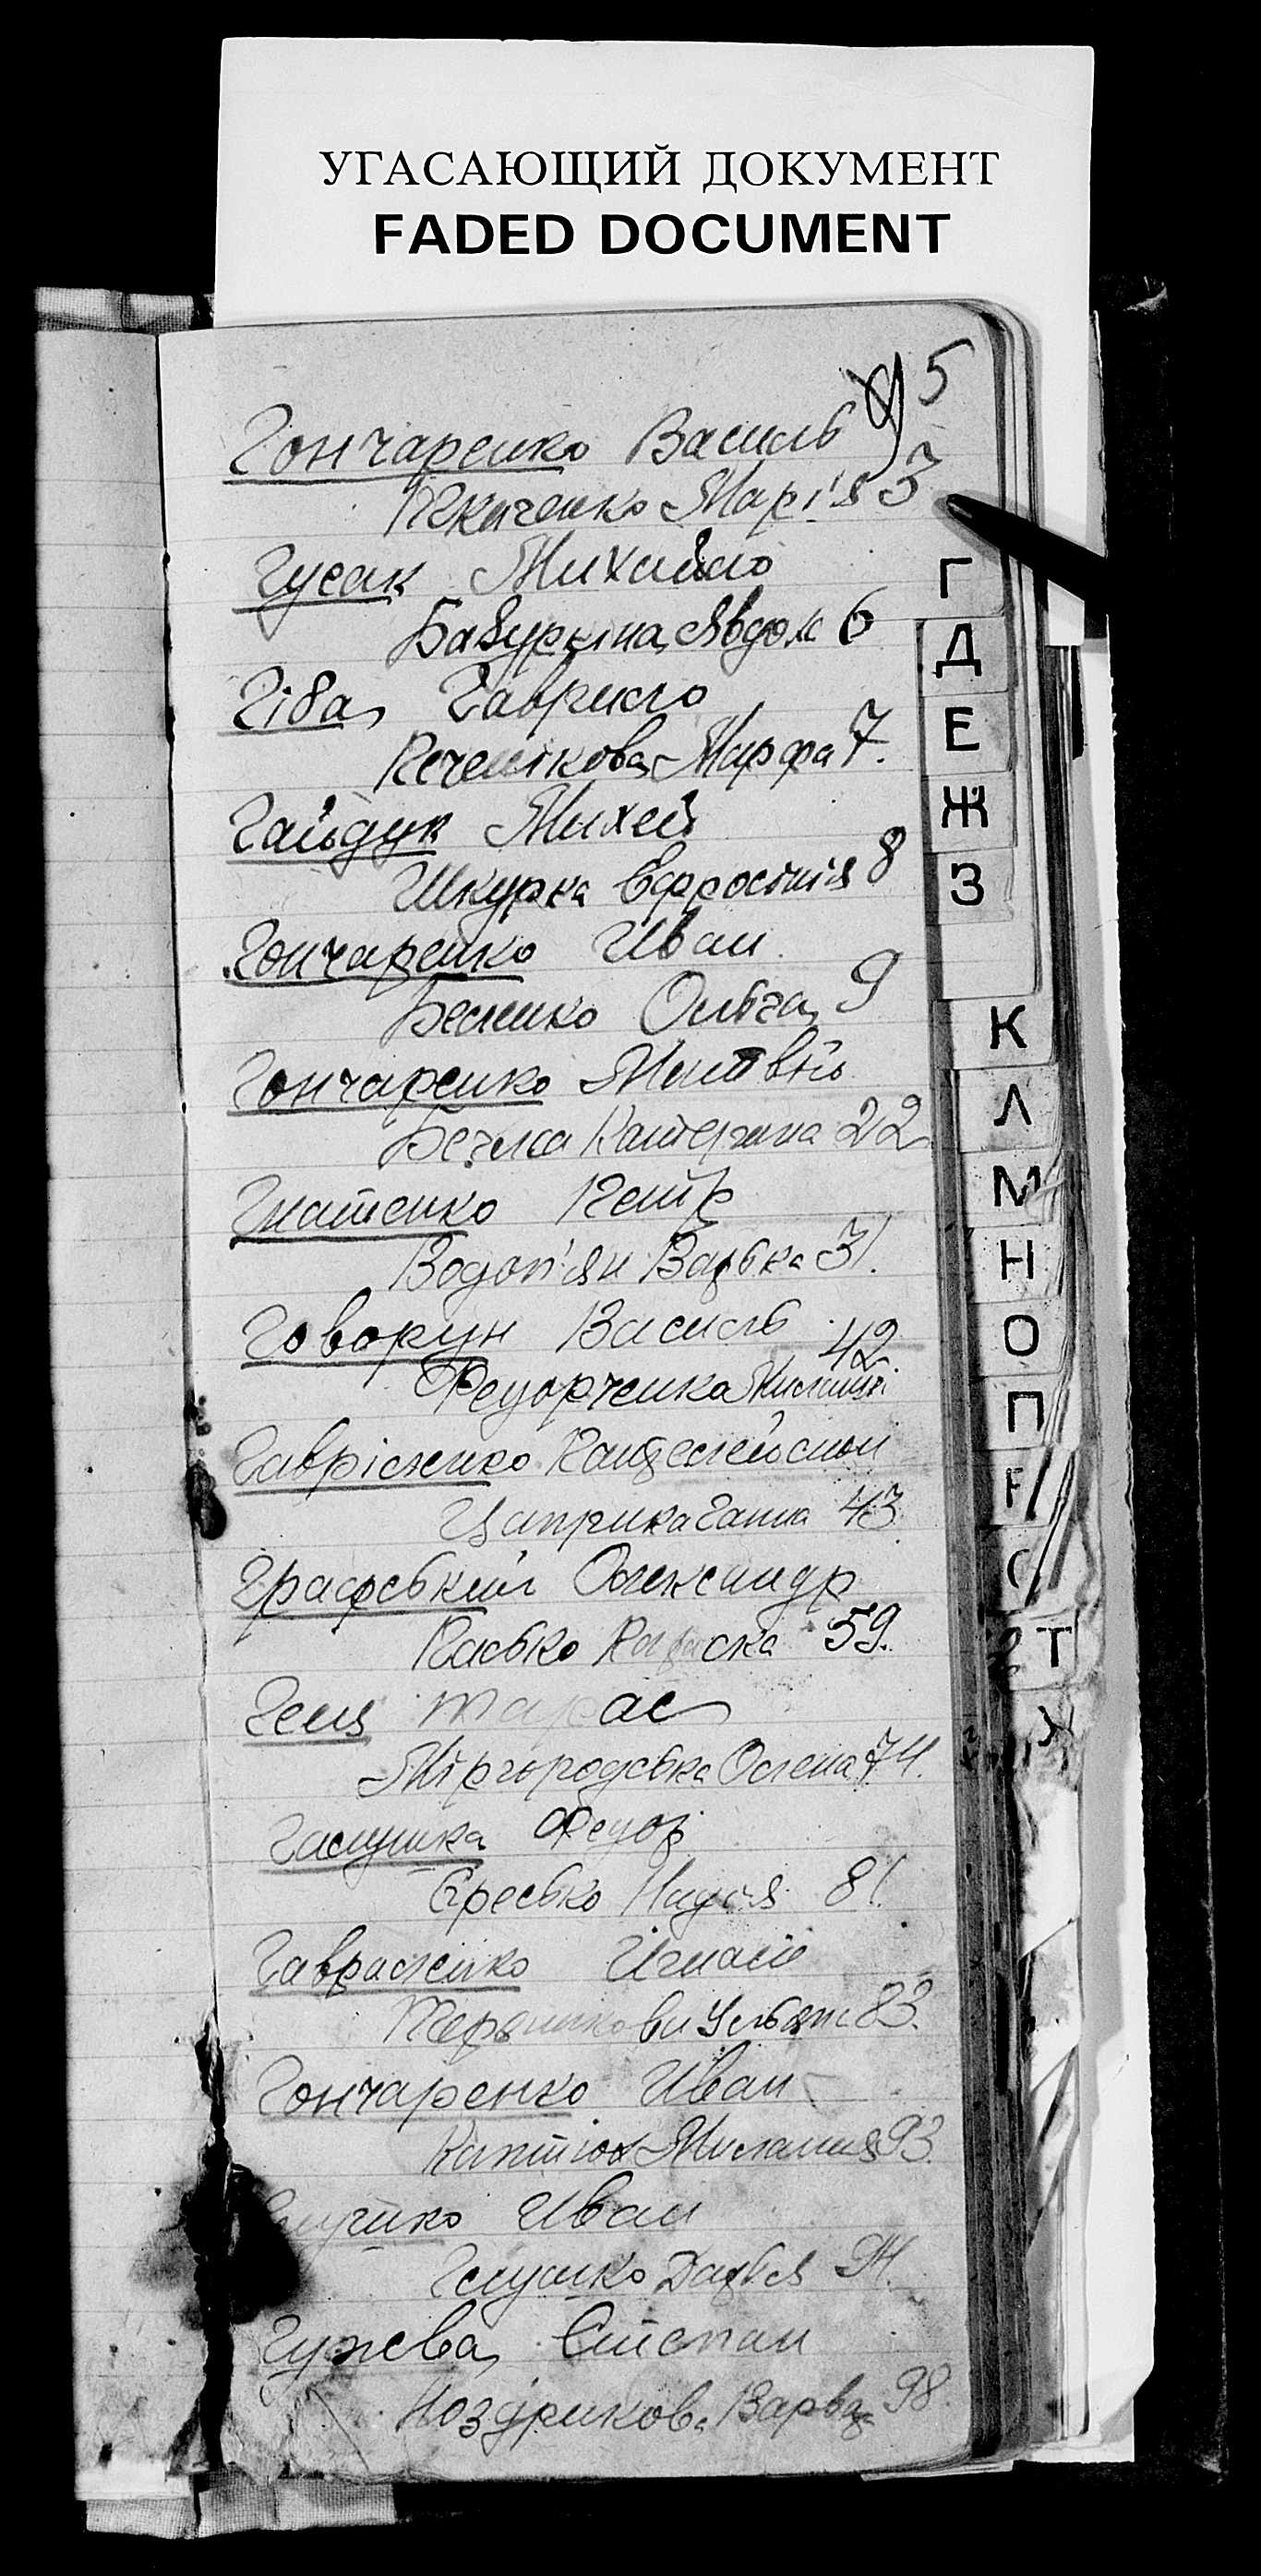 УГАСАЮЩИЙ ДОКУМЕНТ
FADED DOCUMENT
5
Гончаренко Василь
Ткаченко Марія 3
Гусак Михайло
Бабуркіна Явдок 6
Гіба Гаврило
Марфа 7.
Гайдук Михей
Шкурка Єфросінія 8
Гончаренко Иван
Беленко Ольга 9
Гончаренко Матвій
Катерина 22
Гнатенко Петр
Водоп'ян Варька 31.
Говорун Василь
42.
Федорченка
Гавріленко Пантелеймон
Цаприка Ганна 43.
Графський Олександр
59.
Геня Тарас
Міргородська Олена 74.
Галушка Федор
Єресько Надія 81.
Гавриленко Игнат
Уляна 83.
Гончаренко Иван
Капітюх Милания 93.
Иван
Глушко Дарья 94.
Гужева Степан
Ноздрикова Варвара 98.
Г
Д
Е
Ж
З
К
Л
М
Н
О
П
Р
С
Т
У